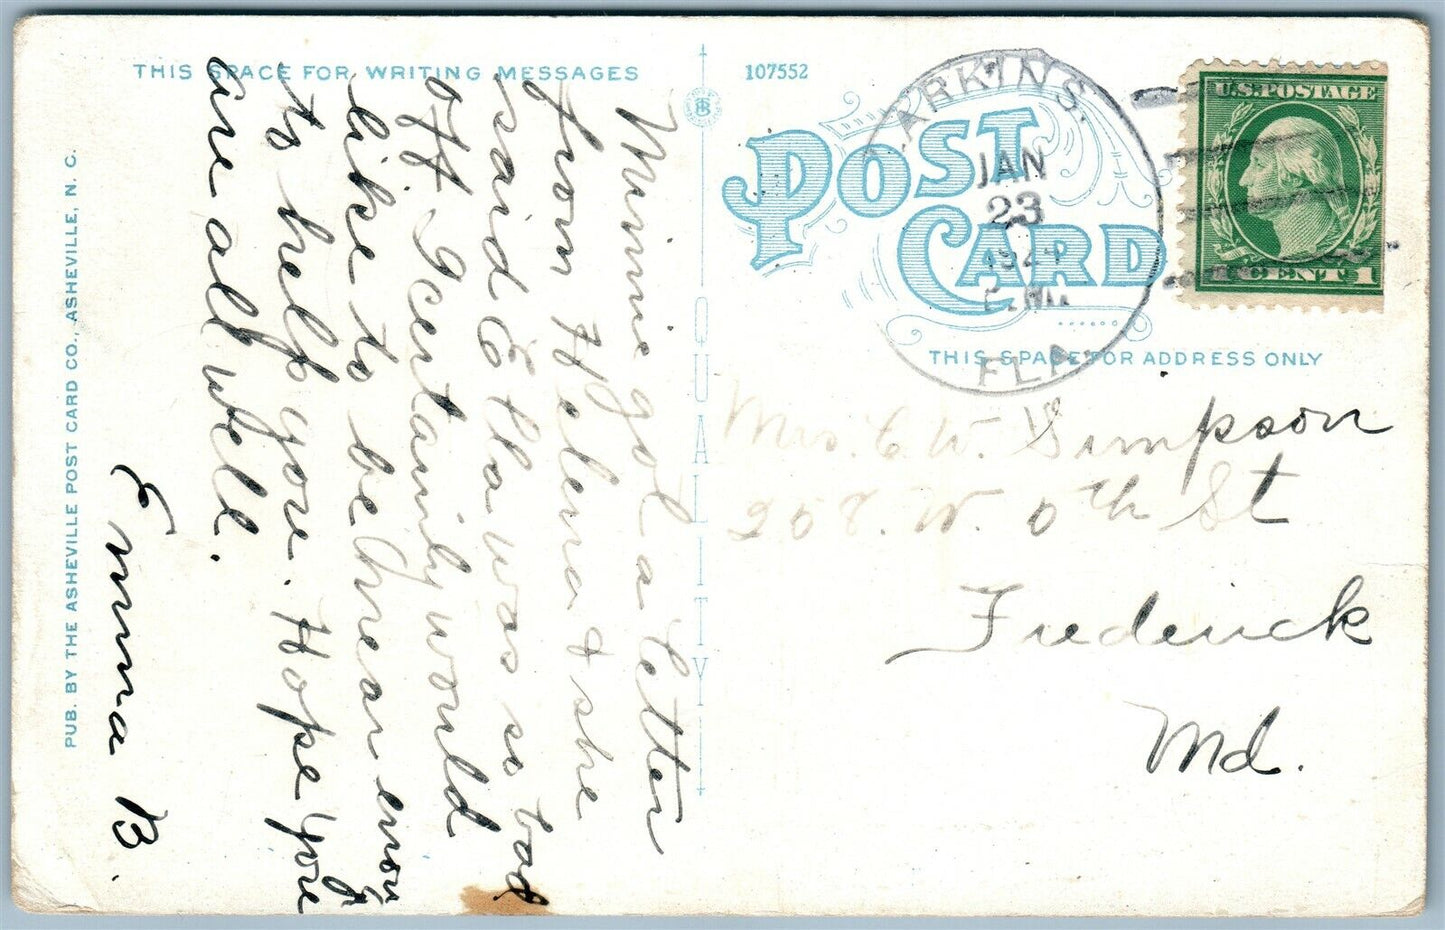 THIS SPACE FOR WRITING MESSAGES
107552
POST
CARD
THIS SPACE FOR ADDRESS ONLY
QUALITY
PUB. BY THE ASHEVILLE POST CARD CO., ASHEVILLE, N. C.
LARKINS.
JAN
23
FLA.
U.S. POSTAGE
CENT 1
Minnie got a letter
from Helena & she
said E tha was so bad
off. I certainly would
like to be near enoug
to help you. Hope you
are all well.
Emma B.
Mrs. C. W. Simpson
208. W. 0th St
Frederick
Md.